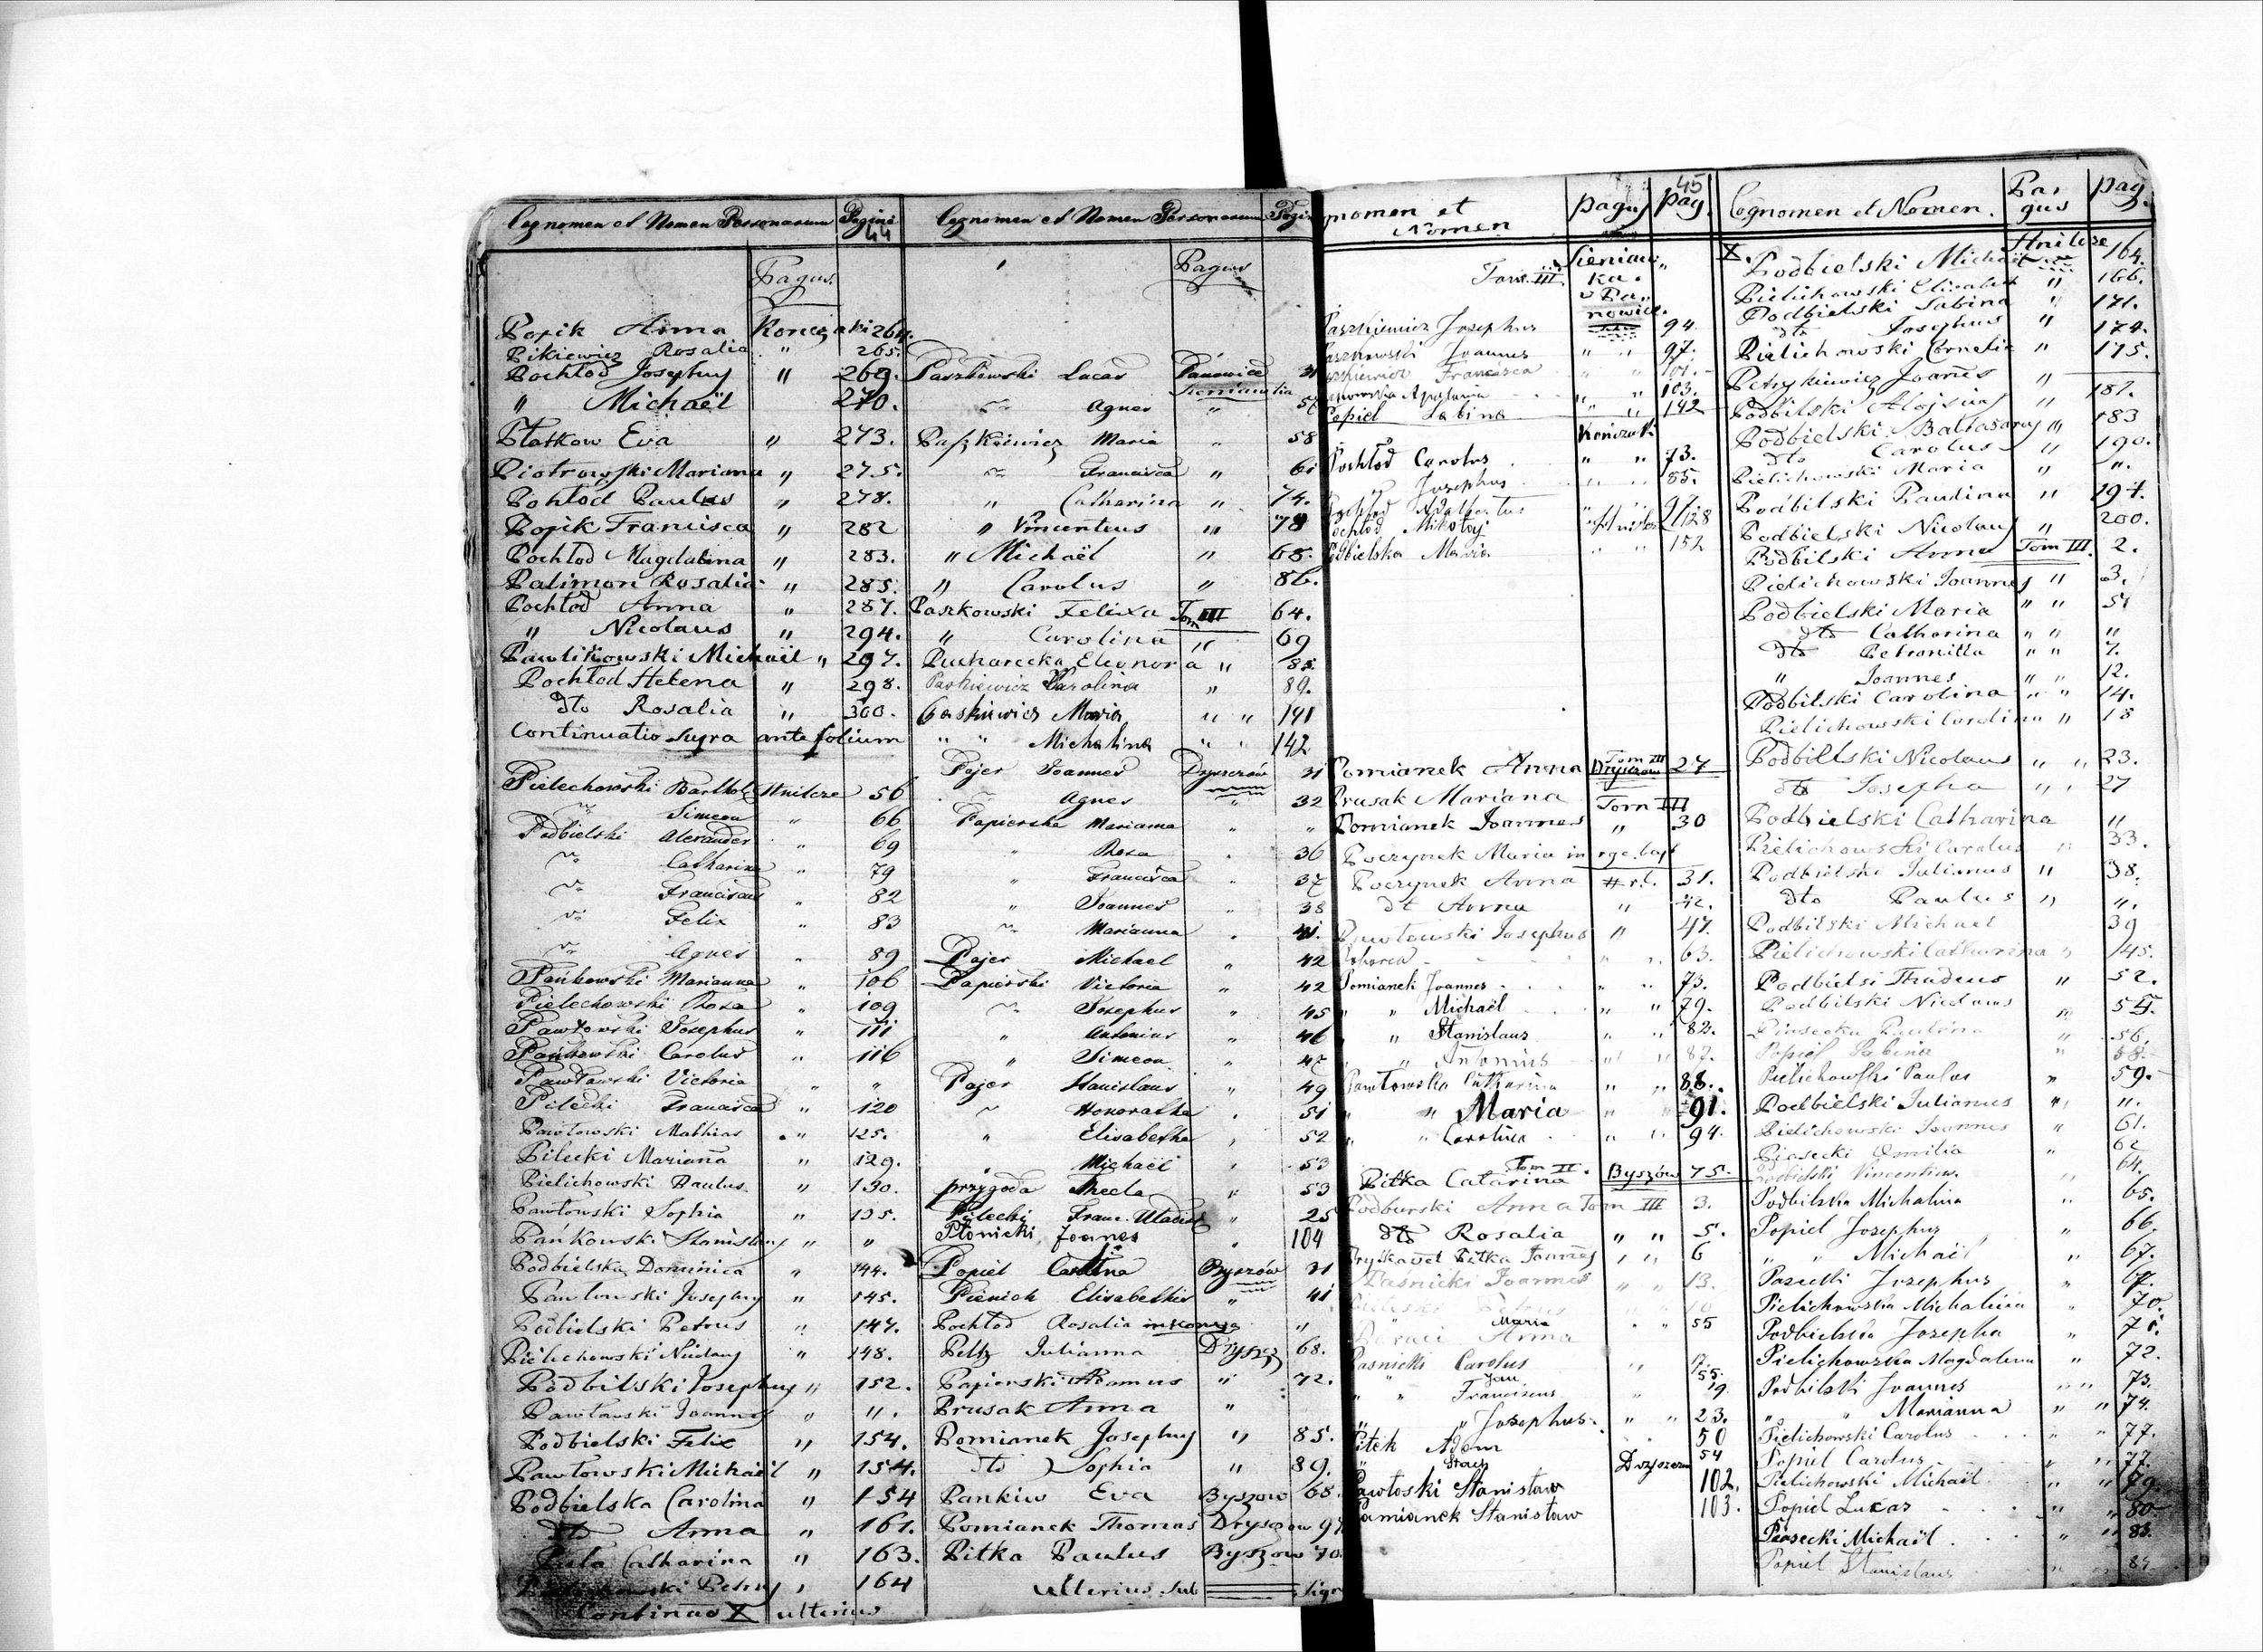 Cognomen et Nomen Personarum Pagina 44
Pagus
Popik Anna Konczaki 264.
Pikiewicz Rosalia " 265.
Pochłod Josephus " 269.
" Michaël 270.
Płatkow Eva " 273.
Piotrowski Mariana " 275.
Pohłod Paulus " 278.
Popik Francisca " 282
Pochłod Magdalena " 283.
Palimon Rosalia " 285.
Pochłod Anna " 287.
" Nicolaus " 294.
Pawlikowski Michaël " 297.
Pochłod Helena " 298.
dto Rosalia " 300.
Continuatio supra ante folium
Pielechowski Barthol. Hnilcze 56
" Simeon " 66
Podbielski Alexander " 69
" Catharina " 79
" Franciscus " 82
" Felix " 83
" Agnes " 89
Pańkowski Marianna " 106
Pielechowski Rosa " 109
Pawłowski Josephus " 111
Pańkowski Carolus " 116
Pawłowski Victoria " "
Pilecki Francisca " 120
Pawłowski Mathias " 125.
Pilecki Mariana " 129.
Pielichowski Paulus " 130.
Pawłowski Sophia " 135.
Pańkowski Stanislaus " "
Podbielska Dominica " 144.
Pawłowski Josephus " 145.
Podbielski Petrus " 147.
Pielichowski Nicolaus " 148.
Podbilski Josephus " 152.
Pawłowski Joannes " ".
Podbielski Felix " 154.
Pawłowski Michaël " 154.
Podbielska Carolina " 154
dto Anna " 161.
Catharina " 163.
Petrus " 164
Continuo X ulterius
Cognomen et Nomen Personarum
Pagus
Paszkowski Lucas Panowice 31
Sieniawka
" Agnes " 57
Paszkiewicz Maria " 58
" Francisca " 61
" Catharina " 74.
" Vincentius " 78
" Michaël " 68.
" Carolus " 86.
Paszkowski Felixa Tom III 64.
" Carolina " 69
Pucharecka Eleonora " 85.
Paskiewicz Karolina " 89.
Maria " " 141
" " Michalina " " 142
Pajer Joannes Dryszczów 31
" Agnes " 32
Papierska Marianna " "
" Rosa " 36
" Francisca " 37
" Joannes " 38
" Marianna " 41.
Pajer Michael " 42
Papierski Victoria " 42
" Josephus " 45
" Antonius " 46
" Simeon " 47
Pajer Stanislaus " 49
" Honoratha " 51
" Elisabetha " 52
" Michaël " 53
Przygoda Thecla " 53
Pilecki Franc. Uladisl " 25
Płonicki Joanes " 104
Popiel Carolina Byszów 31
Pienich Elisabethis " 41
Pochłod Rosalia "
Peltz Julianna Drysz 68.
Papierski Adamus " 72.
Prusak Anna "
Pomianek Josephus " 85.
dto Sophia " 89.
Pankiw Eva Byszow 68.
Pomianek Thomas Dryszow 97
Pitka Paulus Byszow 70.
ulterius sub
nomen et Nomen Pagus Pag. 45
Tom III. Sieniawka v Panowice.
Paszkiewicz Josephus 94
Joannes " " 97.
Francisca " " 101.
Apolonia " " 103.
Popiel Sabina " " 142
Kończaki
Pochłod Carolus " " 73.
" Josephus " " 85.
Mikołaj 128
Podbielska Maria " " 152
Pomianek Anna Tom III Dryszczow 27
Prusak Mariana Tom III
Pomianek Joannes " 30
Poczynek Maria
Poczynek Anna 31.
dt Anna " 42.
Pawłowski Josephus " 47.
" " 63.
Pomianek Joannes " " 73.
" " Michaël " " 79.
" " Stanislaus " " 82.
" " Antonius " " 87.
Pawłowska Catharina " " 88.
" " Maria " " 91.
" " Carolina " " 94.
Pitka Catarina Tom II. Byszów 75.
Podburski Anna Tom III 3.
dto Rosalia " " 5.
Pitka Joannes " " 6
Paśnicki Joannes " " 13.
Maria " " 55
Anna
Pasnicki Carolus " 17.
Jan 55.
" " Franciscus " 19.
" " Josephus. " " 23.
Pitek Adam 50
" Stach Dryszczow 54
Pawłoski Stanisław 102.
Pamianek Stanisław 103.
Cognomen et Nomen. Pagus pag.
X. Podbielski Michaël Hnilcze 164.
Pielichowski Elisabet " 166.
Podbielski Sabina " 171.
dto Josephus " 174.
Pielichowski Cornelia " 175.
Petrykiewicz Joanes "
Podbilski Alojsius " 181.
Podbielski Baltasarus " 183
dto Carolus " 190.
Pielichowski Maria " ".
Podbilski Paulina " 194.
Podbielski Nicolaus " 200.
Podbilski Anna Tom III. 2.
Pielichowski Joannes " 3.
Podbielski Maria " " 5
dto Catharina " " "
dto Petronilla " " 7.
" Joannes " " 12.
Podbilski Carolina " " 14.
Pielichowski Carolina " 18
Podbilski Nicolaus " " 23.
dto Josepha " " 27
Podbielski Catharina "
Pielichowski Carolus " 33.
Podbielski Julianus " 38.
dto Paulus " ".
Podbilski Michael 39
Pielichowski Catharina " 45.
Podbielsi Thadeus " 52.
Podbilski Nicolaus " 55.
Piasecka Paulina " 56.
Popiel Sabina " 58.
Pielichowski Paulus " 59.
Podbielski Julianus " ".
Pielichowski Joannes " 61.
Piasecki Emilia " 62
Podbielski Vincentius " 64.
Podbilska Michalina " 65.
Popiel Josephus " 66.
" " Michaël " 67.
Josephus " 67.
Pielichowska Michalina " 70.
Podbielska Josepha " 71.
Pielichowska Magdalena " 72.
Podbilski Joannes " " 73.
" " Marianna " " 74.
Pielichowski Carolus " " 77.
Popiel Carolus " " 77.
Pielichowski Michaël " " 79.
Popiel Lucas " " 80
Piasecki Michaël " " 83.
Popiel Stanislaus " " 84.